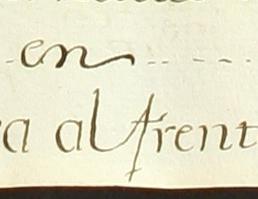 en
a al frent